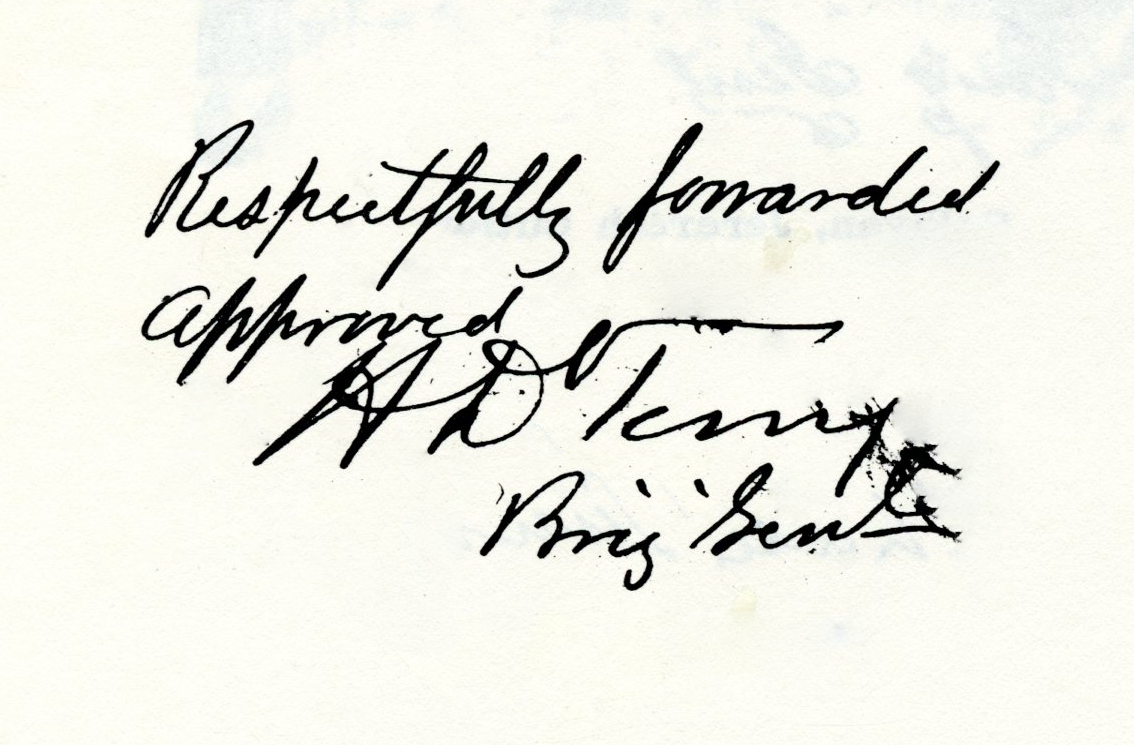 Respectfully forwarded
approved
H D Terry
Brig Genl